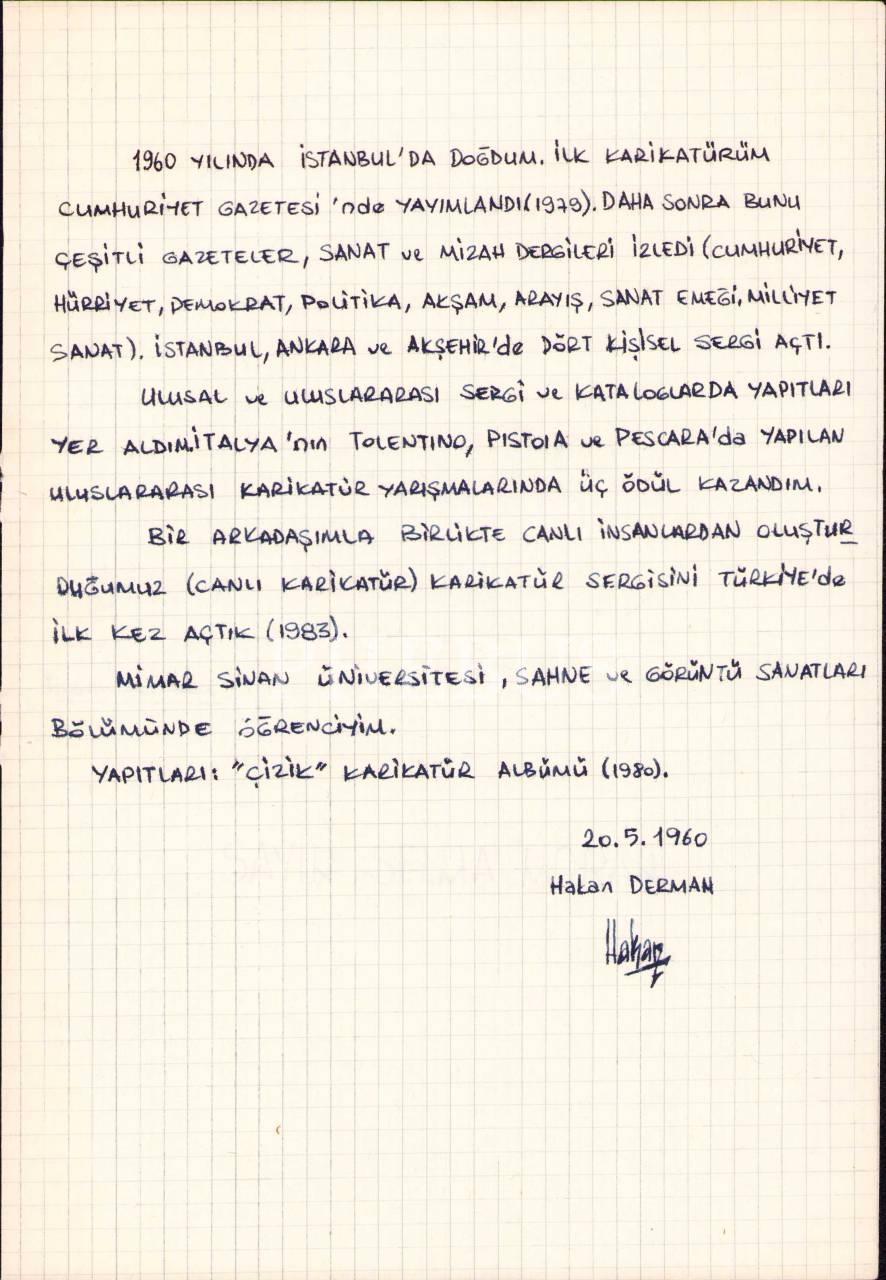 1960 YILINDA İSTANBUL'DA DOĞDUM. İLK KARİKATÜRÜM
CUMHURİYET GAZETESİ 'nde YAYIMLANDI(1979). DAHA SONRA BUNU
ÇEŞİTLİ GAZETELER, SANAT ve MİZAH DERGİLERİ İZLEDİ (CUMHURİYET,
HÜRRİYET, DEMOKRAT, POLİTİKA, AKŞAM, ARAYIŞ, SANAT EMEĞİ, MİLLİYET
SANAT). İSTANBUL, ANKARA ve AKŞEHİR'de DÖRT KİŞİSEL SERGİ AÇTI.
ULUSAL ve ULUSLARARASI SERGİ ve KATALOGLARDA YAPITLARI
YER ALDIM.İTALYA'nın TOLENTINO, PISTOIA ve PESCARA'da YAPILAN
ULUSLARARASI KARİKATÜR YARIŞMALARINDA ÜÇ ÖDÜL KAZANDIM.
BİR ARKADAŞIMLA BİRLİKTE CANLI İNSANLARDAN OLUŞTUR
DUĞUMUZ (CANLI KARİKATÜR) KARİKATÜR SERGİSİNİ TÜRKİYE'de
İLK KEZ AÇTIK (1983).
MİMAR SİNAN ÜNİVERSİTESİ, SAHNE ve GÖRÜNTÜ SANATLARI
BÖLÜMÜNDE ÖĞRENCİYİM.
YAPITLARI: "ÇİZİK" KARİKATÜR ALBÜMÜ (1980).
20.5.1960
Hakan DERMAN
Hakan